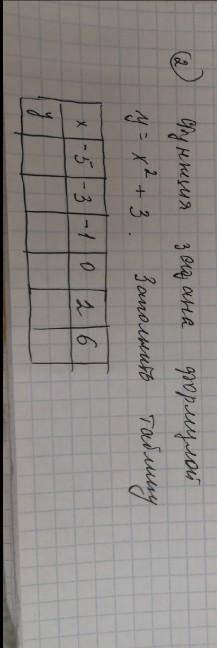 ② Функция задана формулой
y = x² + 3. Заполнить таблицу
x -5 -3 -1 0 2 6
y